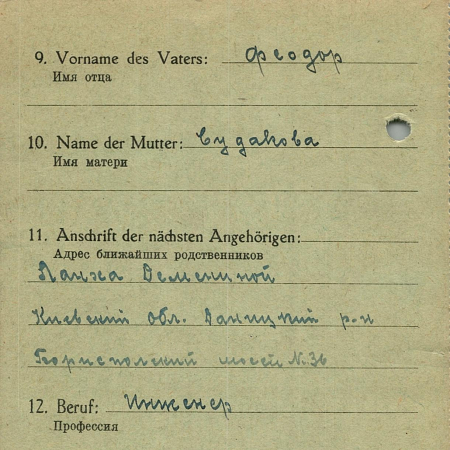 9. Vorname des Vaters: Феодор
Имя отца
10. Name der Mutter: Судакова
Имя матери
11. Anschrift der nächsten Angehörigen:
Адрес ближайших родственников
Киевский обл. р-н
№ 36
12. Beruf: Инженер
Профессия